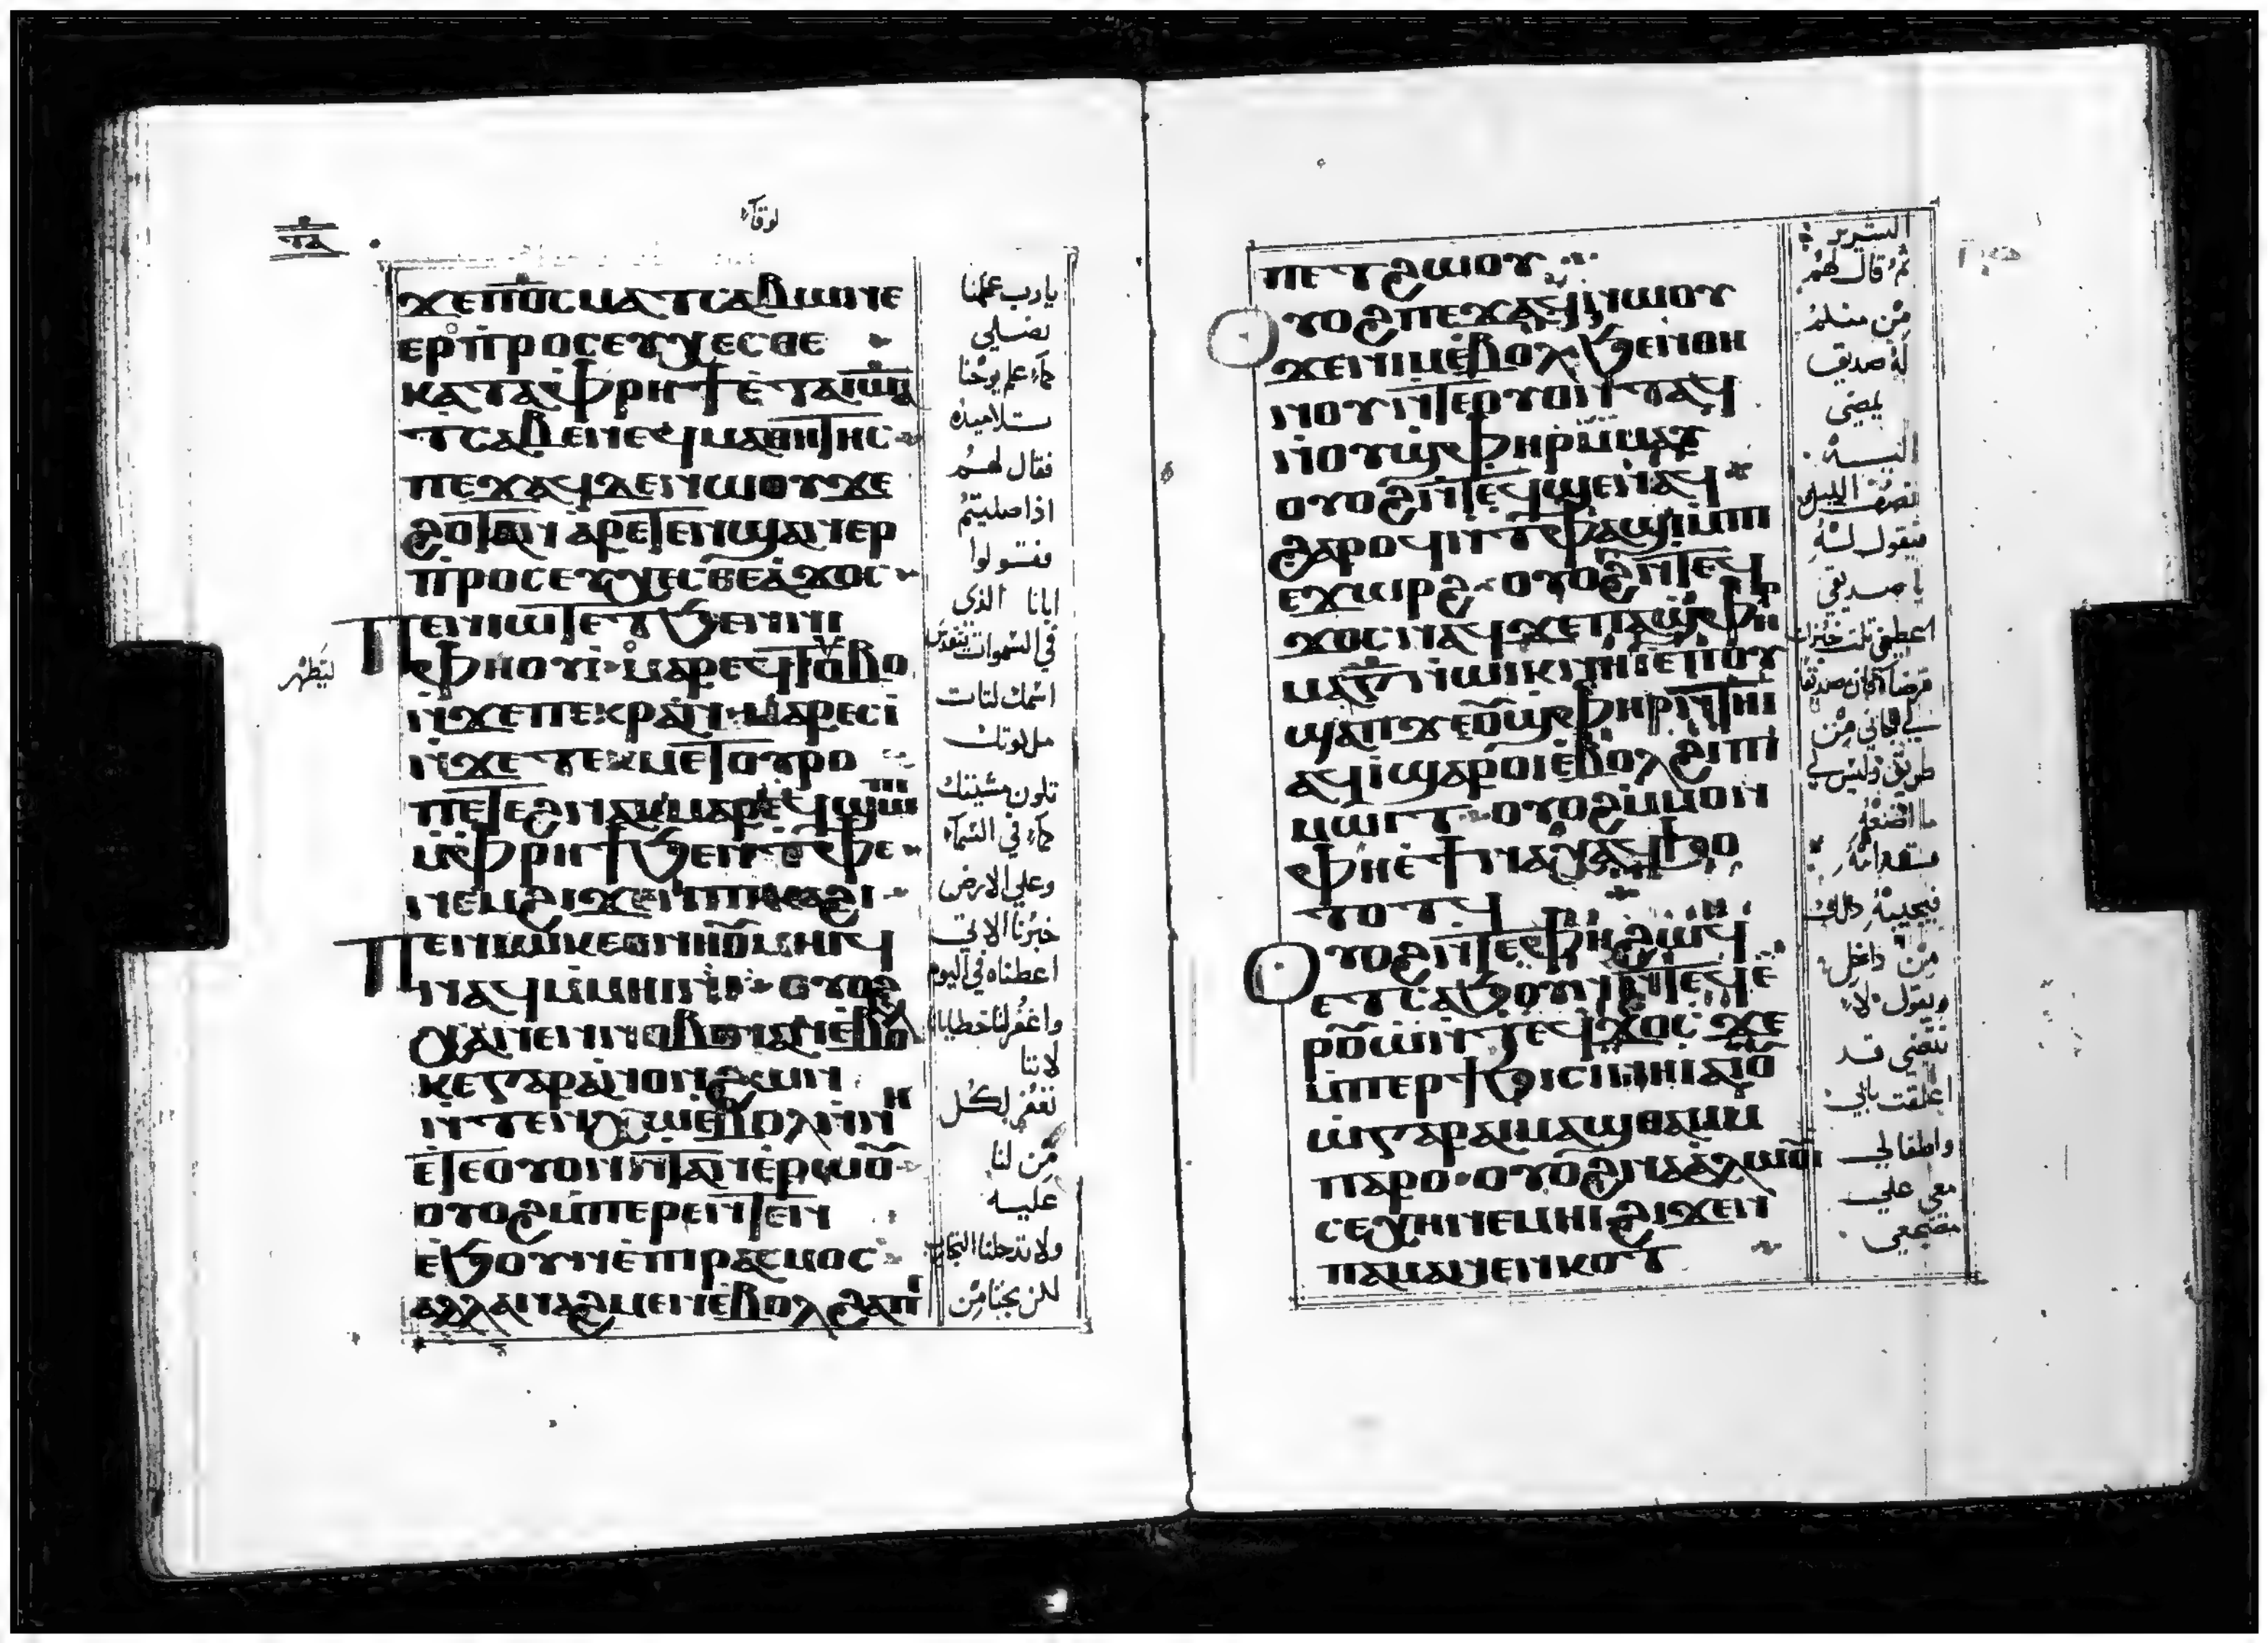 لوقا
ϫⲉⲡⲟ̅ⲥ̅ⲙⲁⲧⲥⲁⲃⲱⲛⲉ
ⲉⲣⲡⲣⲟⲥⲉⲩⲭⲉⲥⲑⲉ
ⲕⲁⲧⲁⲫⲣⲏϯⲉⲧⲁⲓⲱⲁ
ⲧⲥⲁⲃⲉⲛⲉϥⲙⲁⲑⲏⲧⲏⲥ
ⲡⲉϫⲁϥⲇⲉⲛⲱⲟⲩϫⲉ
ϩⲟⲧⲁⲛⲁⲣⲉⲧⲉⲛϣⲁⲛⲉⲣ
ⲡⲣⲟⲥⲉⲩⲭⲉⲥⲑⲉⲁϫⲟⲥ
ⲡⲉⲛⲓⲱⲧⲉⲧϧⲉⲛⲛⲓ
ⲫⲏⲟⲩⲓⲙⲁⲣⲉϥⲧⲟⲩⲃⲟ
ⲛ̀ϫⲉⲡⲉⲕⲣⲁⲛⲙⲁⲣⲉⲥⲓ̀
ⲛ̀ϫⲉⲧⲉⲕⲙⲉⲧⲟⲩⲣⲟ
ⲡⲉⲧⲉϩⲛⲁⲕⲙⲁⲣⲉϥϣⲱⲡⲓ
ⲙ̀ⲫⲣⲏϯϧⲉⲛⲧⲫⲉ
ⲛⲉⲙϩⲓϫⲉⲛⲡⲓⲕⲁϩⲓ
ⲡⲉⲛⲱⲓⲕⲉⲑⲛⲏⲟⲩⲙⲏⲓϥ
ⲛⲁⲛⲙ̀ⲫⲟⲟⲩⲟⲩⲟϩ
ⲭⲁⲛⲉⲛⲛⲟⲃⲓⲛⲁⲛⲉⲃⲟⲗ
ⲕⲉⲅⲁⲣⲁⲛⲟⲛϩⲱⲛ
ⲛ̀ⲧⲉⲛⲭⲱⲉⲃⲟⲗⲛ̀ⲛⲏ
ⲉⲧⲉⲟⲩⲟⲛⲛ̀ⲧⲁⲛⲉⲣⲱⲟⲩ
ⲟⲩⲟϩⲙ̀ⲡⲉⲣⲉⲛⲧⲉⲛ
ⲉϧⲟⲩⲛⲉⲡⲓⲣⲁⲥⲙⲟⲥ
ⲁⲗⲗⲁⲛⲁϩⲙⲉⲛⲉⲃⲟⲗϩⲁⲡⲓ
يارب علمنا
نصلي
كما علم يوحنا
تلاميذه
فقال لهم
اذا صليتم
فقولوا
ابانا الذي
في السموات يتقدس
ليتطهر
اسمك لتات
ملكوتك
تكون مشيئتك
كما في السماء
وعلي الارض
خبزنا الاتي
اعطناه في اليوم
واغفر لنا خطايانا
لاننا
نغفر لكل
من لنا
عليه
ولا تدخلنا التجارب
لكن نجنا من
ⲡⲉⲧϩⲱⲟⲩ
ⲟⲩⲟϩⲡⲉϫⲁϥⲛⲱⲟⲩ
ϫⲉⲛⲓⲙⲉⲃⲟⲗϧⲉⲛⲑⲏ
ⲛⲟⲩⲉⲧⲉⲟⲩⲟⲛⲧⲁϥ
ⲛ̀ⲟⲩϣⲫⲏⲣⲙ̀ⲙⲁⲩ
ⲟⲩⲟϩⲛ̀ⲧⲉϥϣⲉⲛⲁϥ
ϩⲁⲣⲟϥⲛ̀ⲧⲫⲁϣⲓⲙ̀ⲡⲓ
ⲉϫⲱⲣϩⲟⲩⲟϩⲛ̀ⲧⲉϥ
ϫⲟⲥⲛⲁϥϫⲉⲡⲁϣⲫⲏⲣ
ⲙⲁⲅ̅ⲛ̀ⲱⲓⲕⲛⲏⲓⲉⲡⲟⲩ
ϣⲁⲡϫⲉⲟⲩϣⲫⲏⲣⲛ̀ⲧⲏⲓ
ⲁϥⲓ̀ϣⲁⲣⲟⲓⲉⲃⲟⲗϩⲓⲡⲓ
ⲙⲱⲓⲧⲟⲩⲟϩⲙ̀ⲙⲟⲛ
ⲫⲏⲉϯⲛⲁⲭⲁϥϧⲁ
ⲧⲟⲧϥ
ⲟⲩⲟϩⲛ̀ⲧⲉⲫⲏϩⲱϥ
ⲉⲧⲥⲁϧⲟⲩⲛⲛ̀ⲧⲉϥⲉ̀
ⲣⲟⲩⲱⲛ̀ⲧⲉϥϫⲟⲥϫⲉ
ⲙ̀ⲡⲉⲣϯϧⲓⲥⲓⲛⲏⲓⲁⲓⲟⲩ
ⲱⲅⲁⲣⲁⲓⲙⲁϣⲑⲁⲙⲙ̀
ⲡⲁⲣⲟⲟⲩⲟϩⲛⲁⲁⲗⲱⲟⲩⲓ
ⲥⲉⲭⲏⲛⲉⲙⲏⲓϩⲓϫⲉⲛ
ⲡⲁⲙⲁⲛⲉⲛⲕⲟⲧ
الشرير
ثم قال لهم
من منكم
له صديق
يمضي
اليه
نصف الليل
فيقول له
يا صديقي
اعطني ثلث خبزات
قرضا لان صديقا
لي جاني من
طريق وليس لي
ما اضعه
قدامه
فيجيبه ذلك
من داخل
ويقول لا
تتعبني قد
اغلقت بابي
واطفالي
معي علي
مضجعي